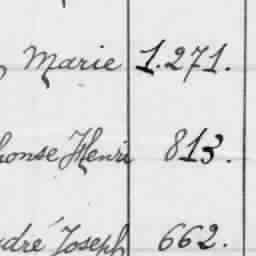 Marie 1.271.
honse Henri 813.
dré Joseph 662.